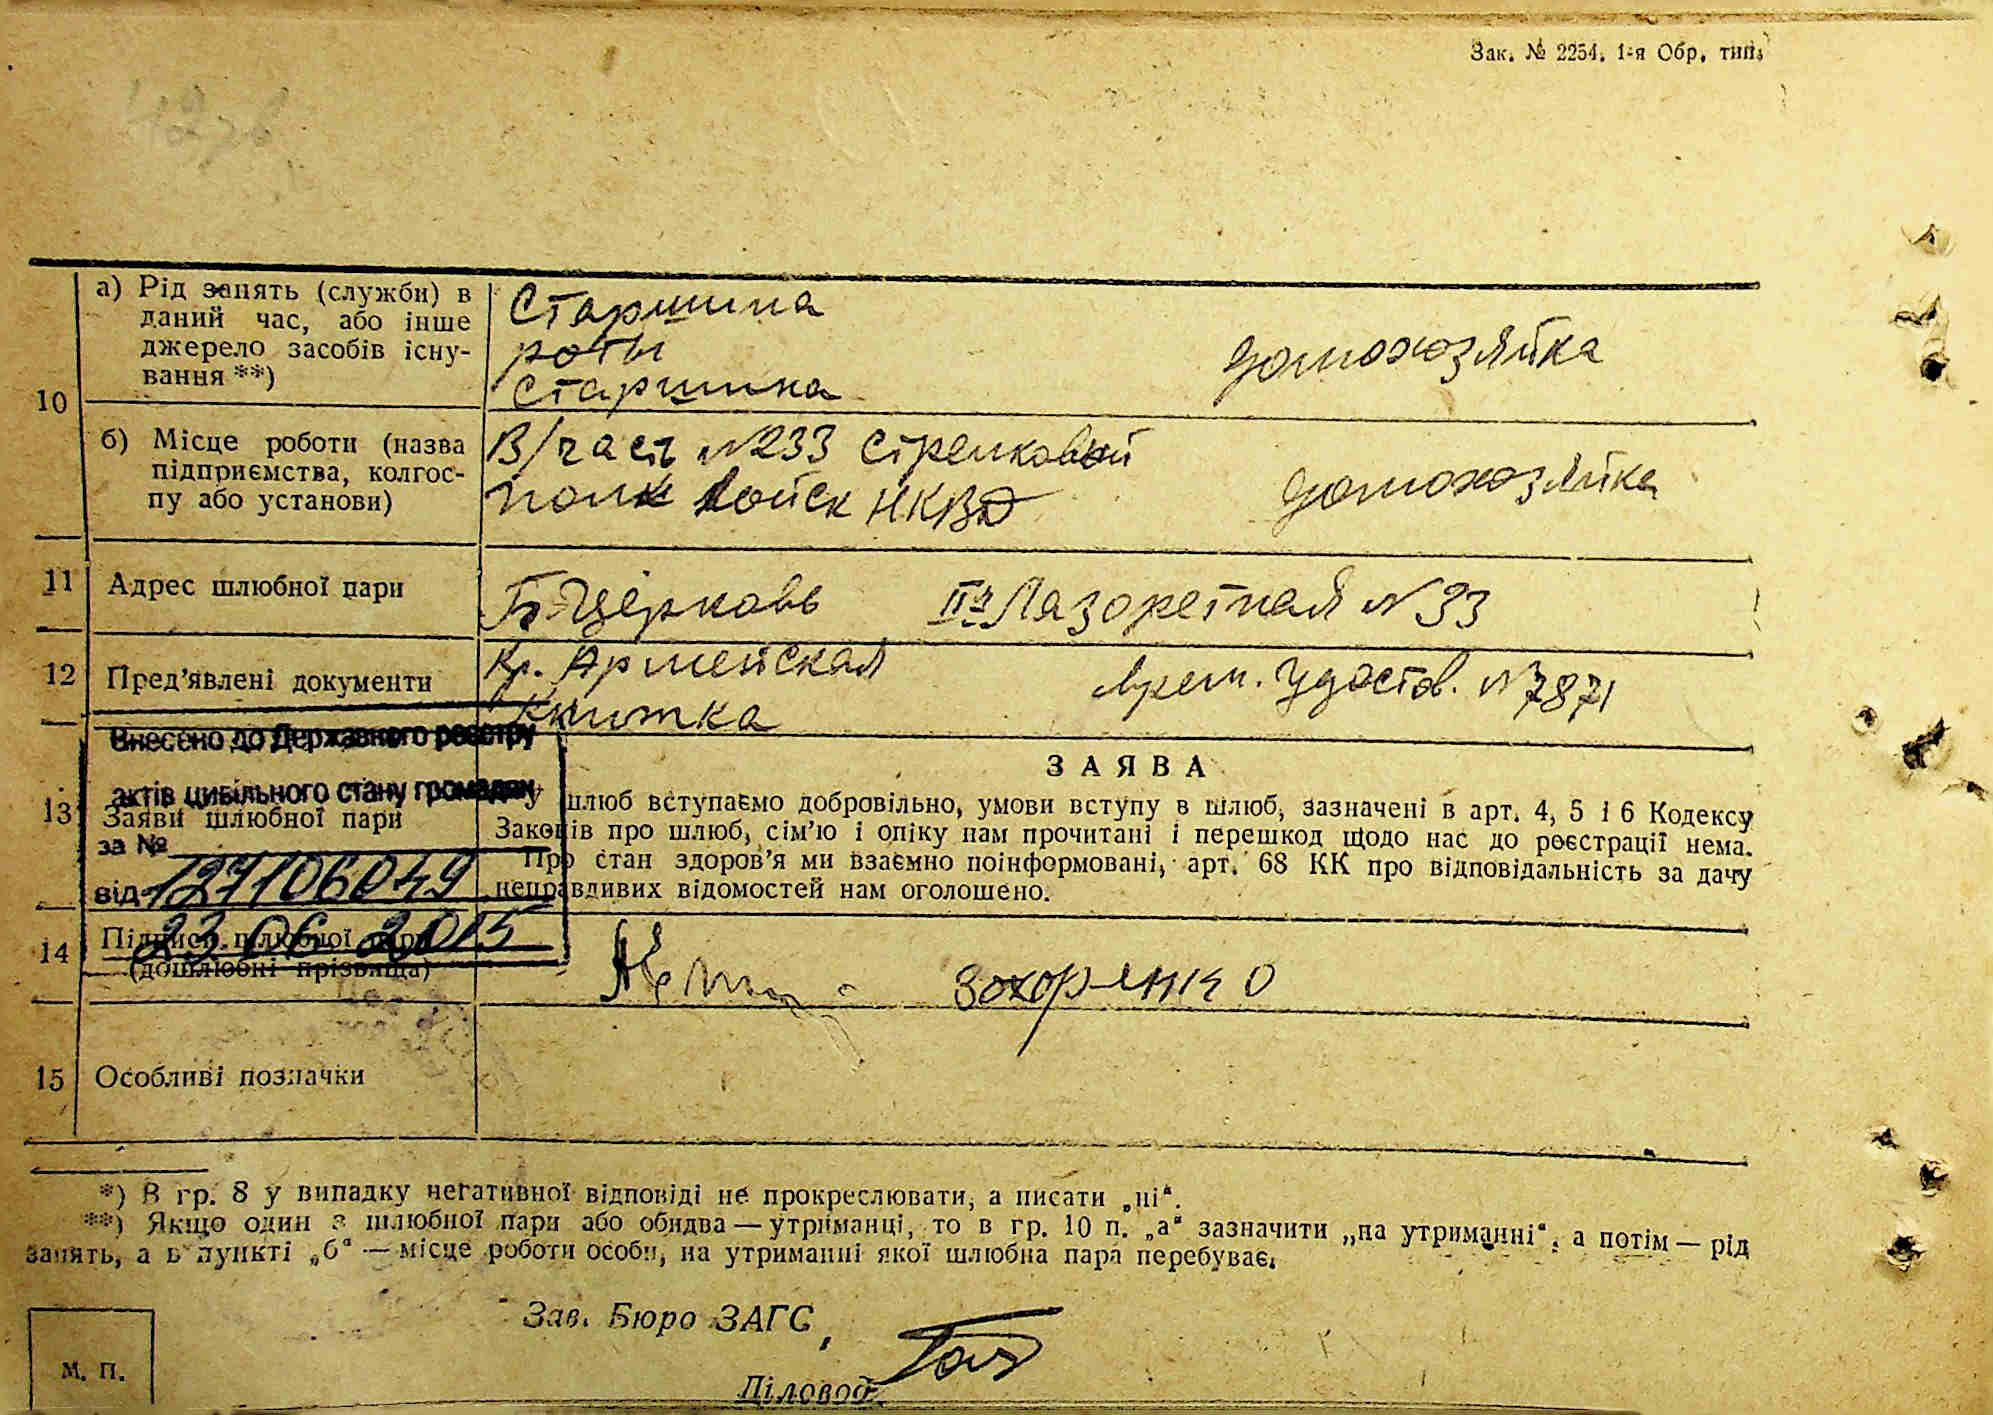 Зак. № 2254. 1-я Обр. тип.
10
а) Рід занять (служби) в
даний час, або інше
джерело засобів існу-
вання **)
Старшина
роты
Старшина
домохозяйка
б) Місце роботи (назва
підприємства, колгос-
пу або установи)
В/часть №233 стрелковый
полк войск НКВД
домохозяйка
11
Адрес шлюбної пари
Б-Церковь IIя Лазоретная №33
12
Пред'явлені документи
Кр. Армейская
Книжка
врем. удостов. №7871
Внесено до Державного реєстру
актів цивільного стану громадян
за №
127106049
від
23.06.2015
13
Заяви шлюбної пари
ЗАЯВА
У шлюб вступаємо добровільно, умови вступу в шлюб, зазначені в арт. 4, 5 і 6 Кодексу
Законів про шлюб, сім'ю і опіку нам прочитані і перешкод щодо нас до реєстрації нема.
Про стан здоров'я ми взаємно поінформовані, арт. 68 КК про відповідальність за дачу
неправдивих відомостей нам оголошено.
14
Підписи шлюбної пари
(дошлюбні прізвища)
Захоренко
15
Особливі позначки
*) В гр. 8 у випадку негативної відповіді не прокреслювати, а писати „ні“.
**) Якщо один з шлюбної пари або обидва — утриманці, то в гр. 10 п. „а“ зазначити „на утриманні“, а потім — рід
занять, а в пункті „б“ — місце роботи особи, на утриманні якої шлюбна пара перебуває.
Зав. Бюро ЗАГС
Діловод
М. П.